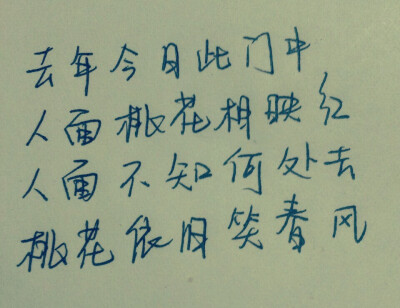 去年今日此门中
人面桃花相映红
人面不知何处去
桃花依旧笑春风